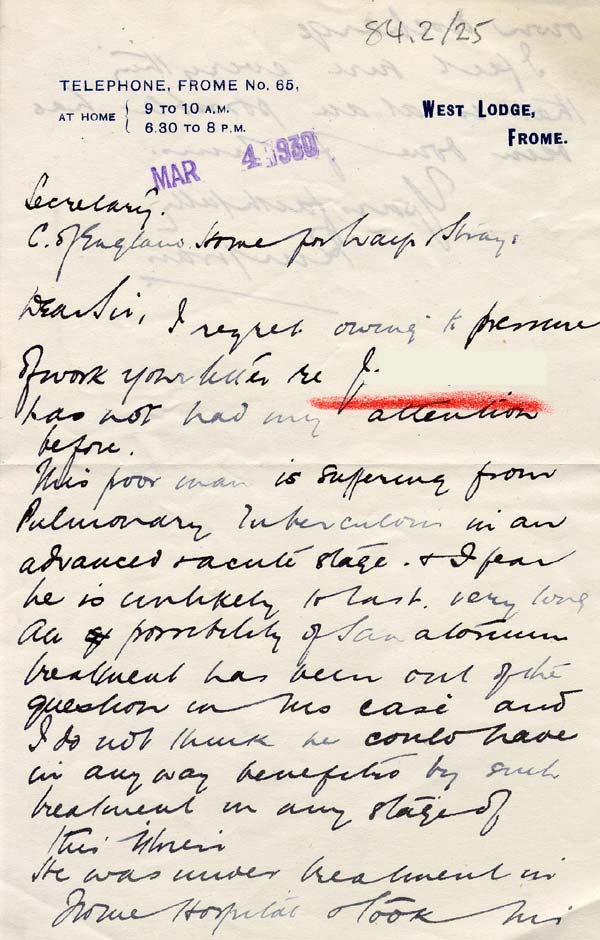 84.2/25
TELEPHONE, FROME No. 65,
AT HOME { 9 TO 10 A.M.
6.30 TO 8 P.M.
WEST LODGE,
FROME.
MAR 4 1930
Secretary.
C. of England Home for Waifs Strays
Dear Sir, I regret owing to pressure
of work your letter re J.
has not had my attention
before.
This poor man is suffering from
Pulmonary Tuberculosis in an
advanced & acute stage. & I fear
he is unlikely to last very long
possibility of Sanatorium
treatment has been out of the
question in his case and
I do not think he could have
in any way benefited by such
treatment in any stage of
this illness
He was under treatment in
Frome Hospital & took his